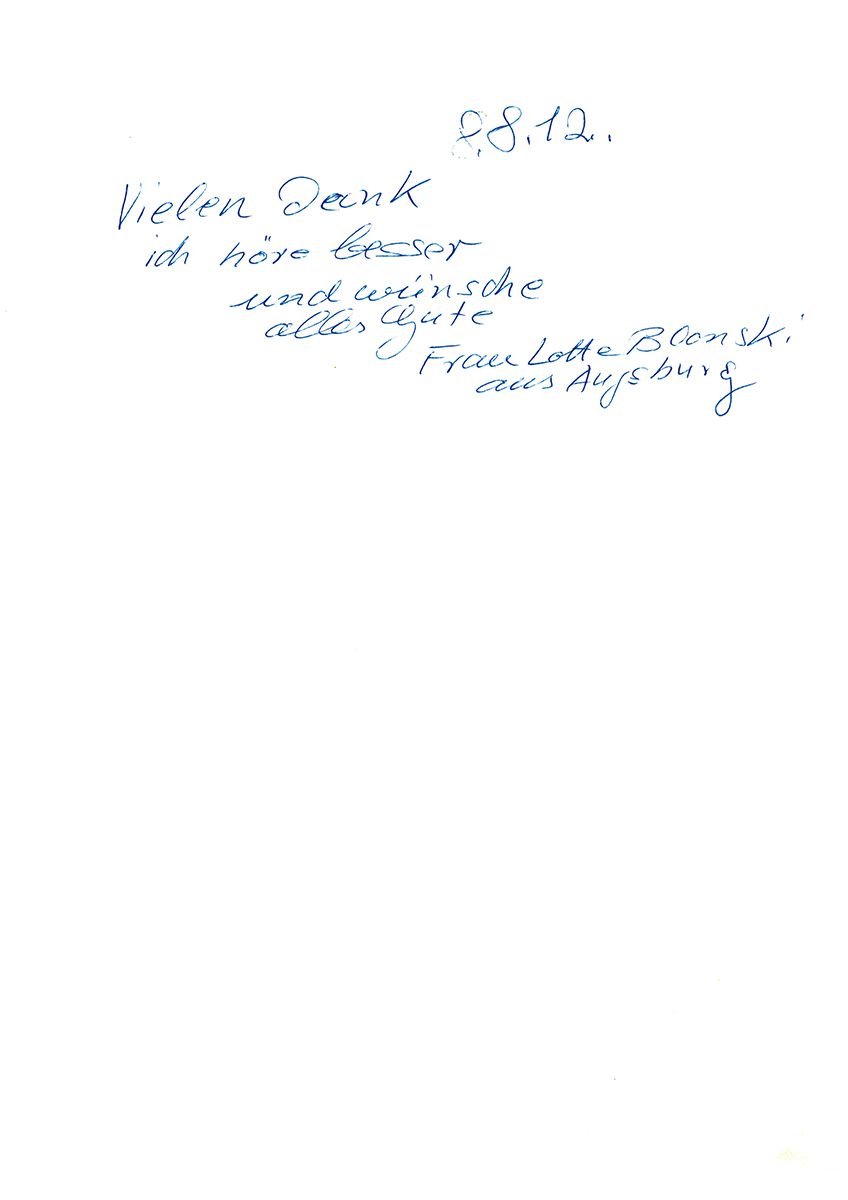 8.8.12.
Vielen Dank
ich höre besser
und wünsche
alles Gute
Frau Lotte Blonski
aus Augsburg